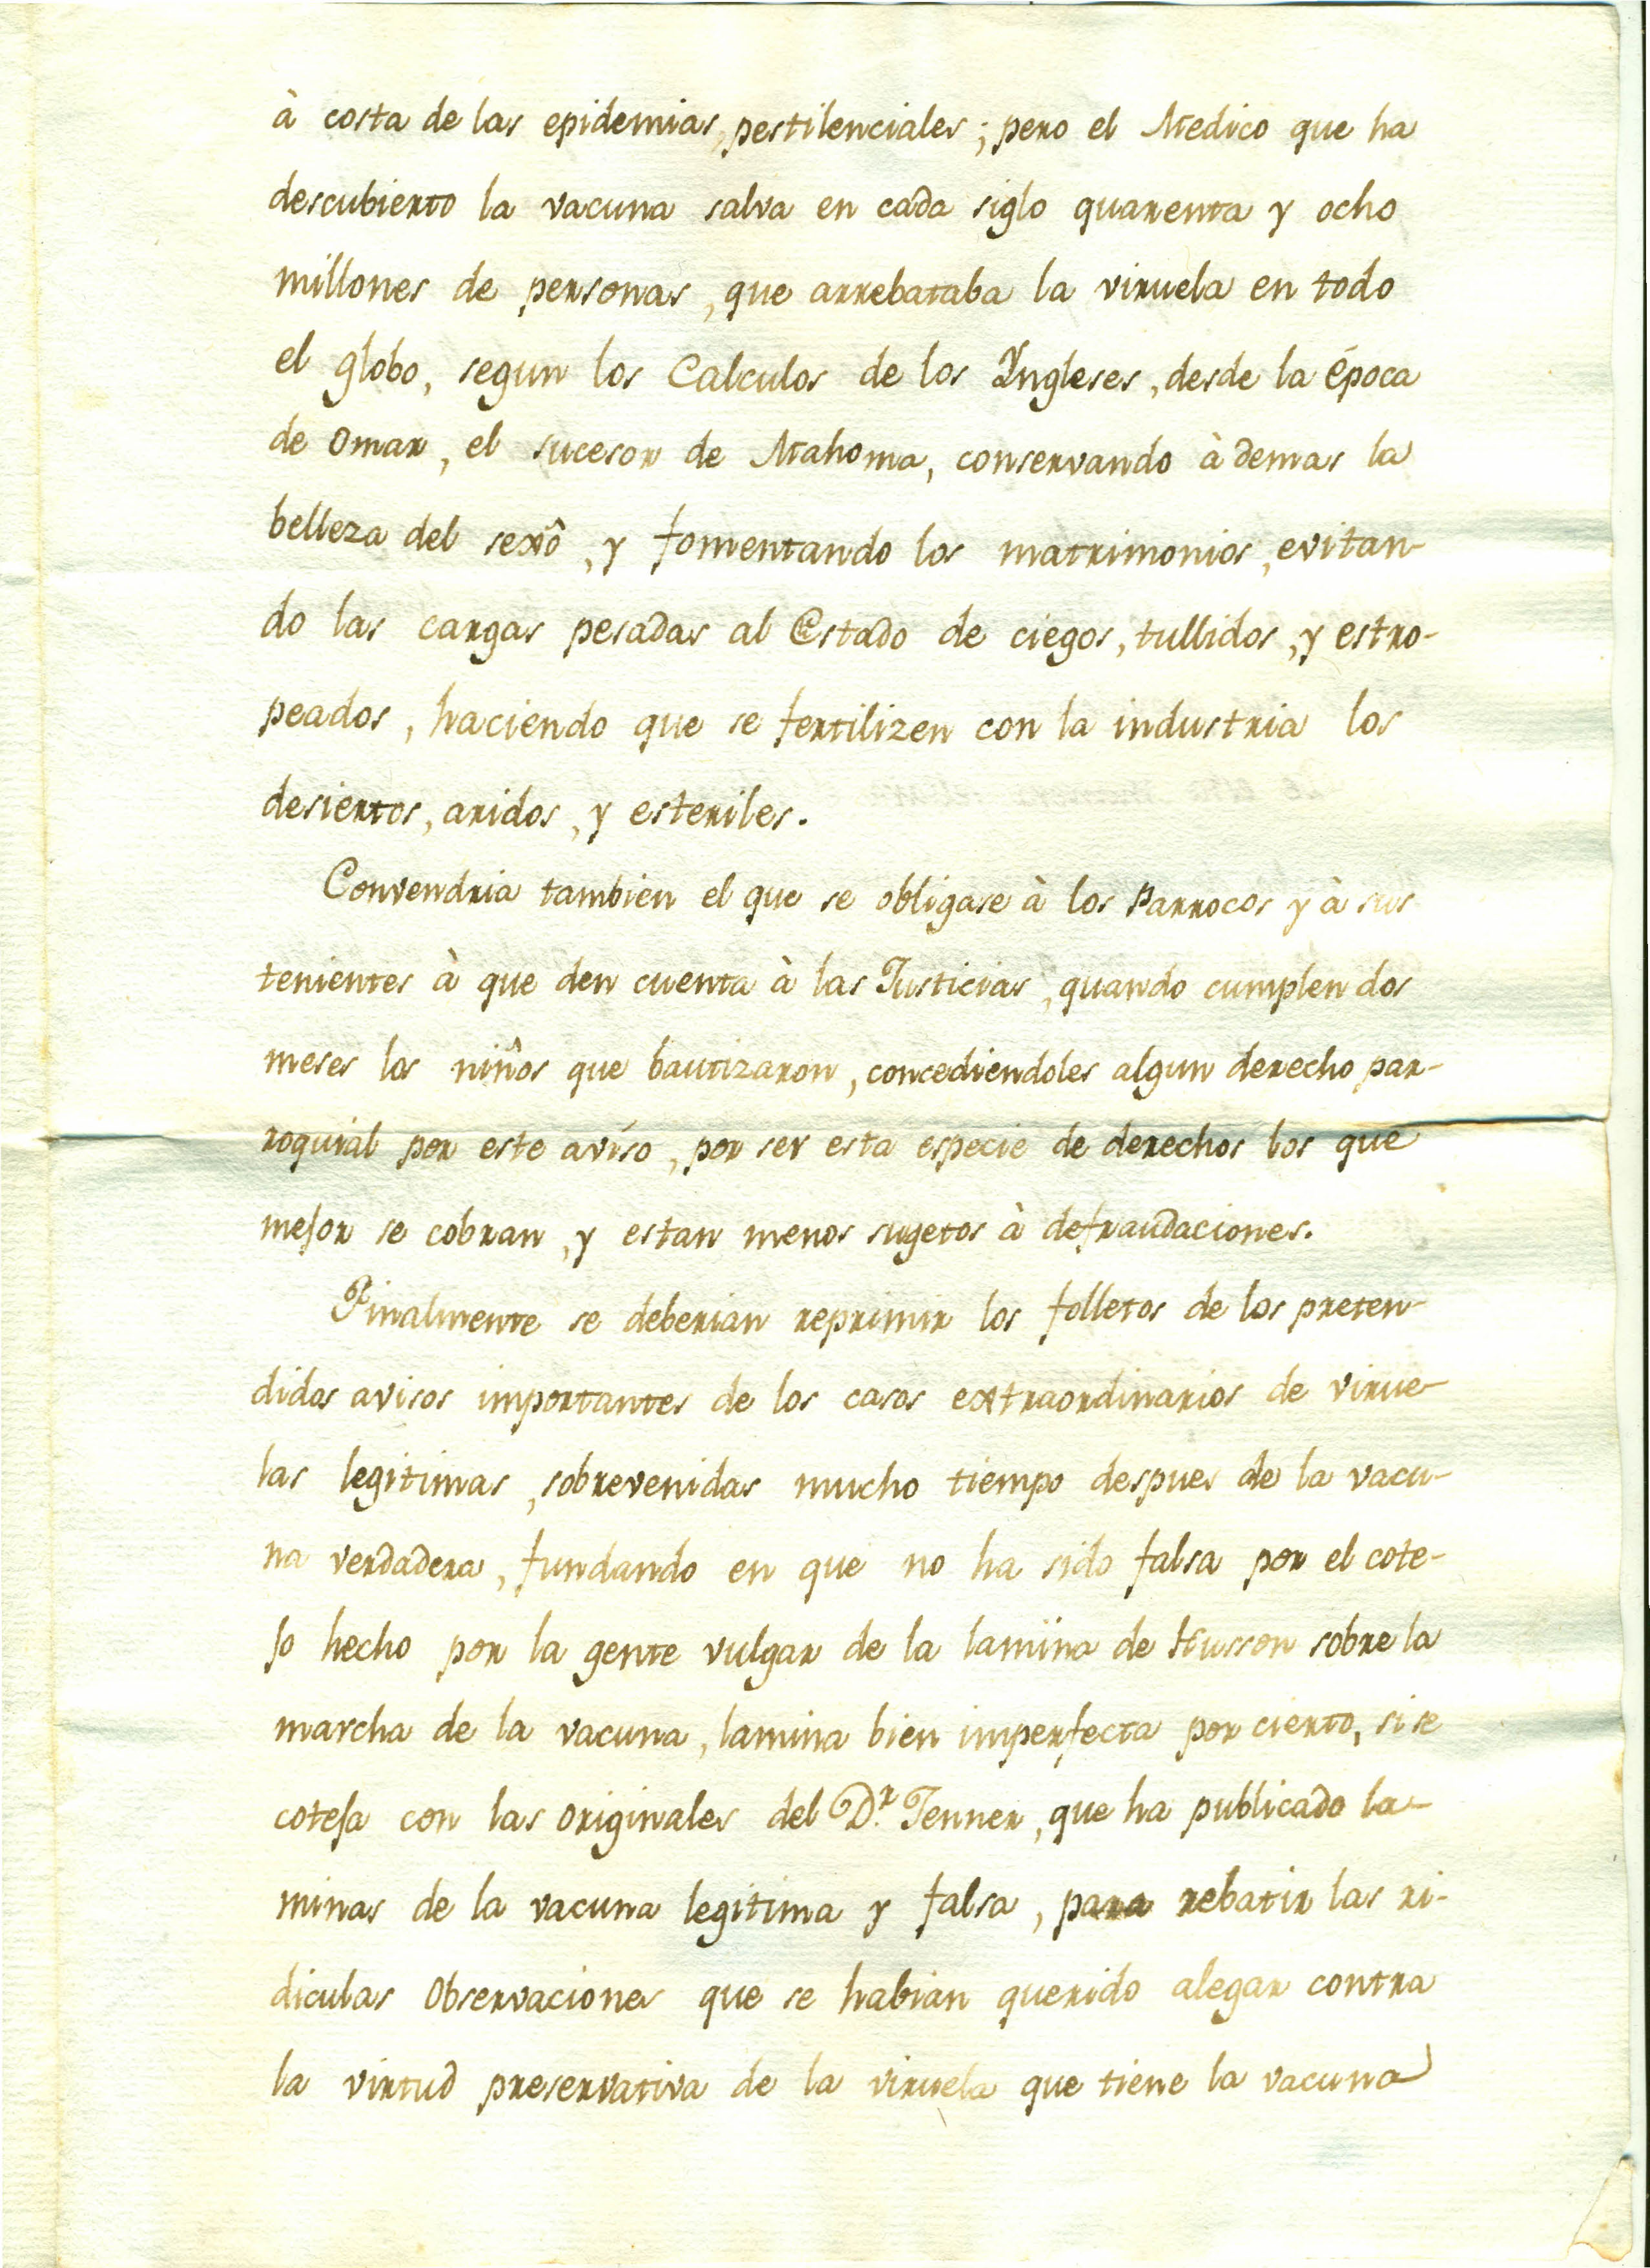 à costa de las epidemias, pestilenciales; pero el Medico que ha
descubierto la vacuna salva en cada siglo quarenta y ocho
millones de personas, que arrebataba la viruela en todo
el globo, segun los Calculos de los Yngleses, desde la época
de Omar, el sucesor de Mahoma, conservando àdemas la
belleza del sexô, y fomentando los matrimonios, evitan-
do las cargas pesadas al Estado de ciegos, tullidos, y estro-
peados, haciendo que se fertilizen con la industria los
desiertos, aridos, y esteriles.
Convendria tambien el que se obligase à los Parrocos y à sus
tenientes à que den cuenta à las Justicias, quando cumplen dos
meses los niños que bautizaron, concediendoles algun derecho par-
roquial por este aviso, por ser esta especie de derechos los que
mejor se cobran, y estan menos sugetos à defraudaciones.
Finalmente se deberian reprimir los folletos de los preten-
didos avisos importantes de los casos extraordinarios de virue-
las legitimas, sobrevenidas mucho tiempo despues de la vacu-
na verdadera, fundando en que no ha sido falsa por el cote-
jo hecho por la gente vulgar de la lamina de Husson sobre la
marcha de la vacuna, lamina bien imperfecta por cierto, si se
coteja con las originales del Dr. Jenner, que ha publicado la-
minas de la vacuna legitima y falsa, para rebatir las ri-
diculas Observaciones que se habian querido alegar contra
la virtud preservativa de la viruela que tiene la vacuna